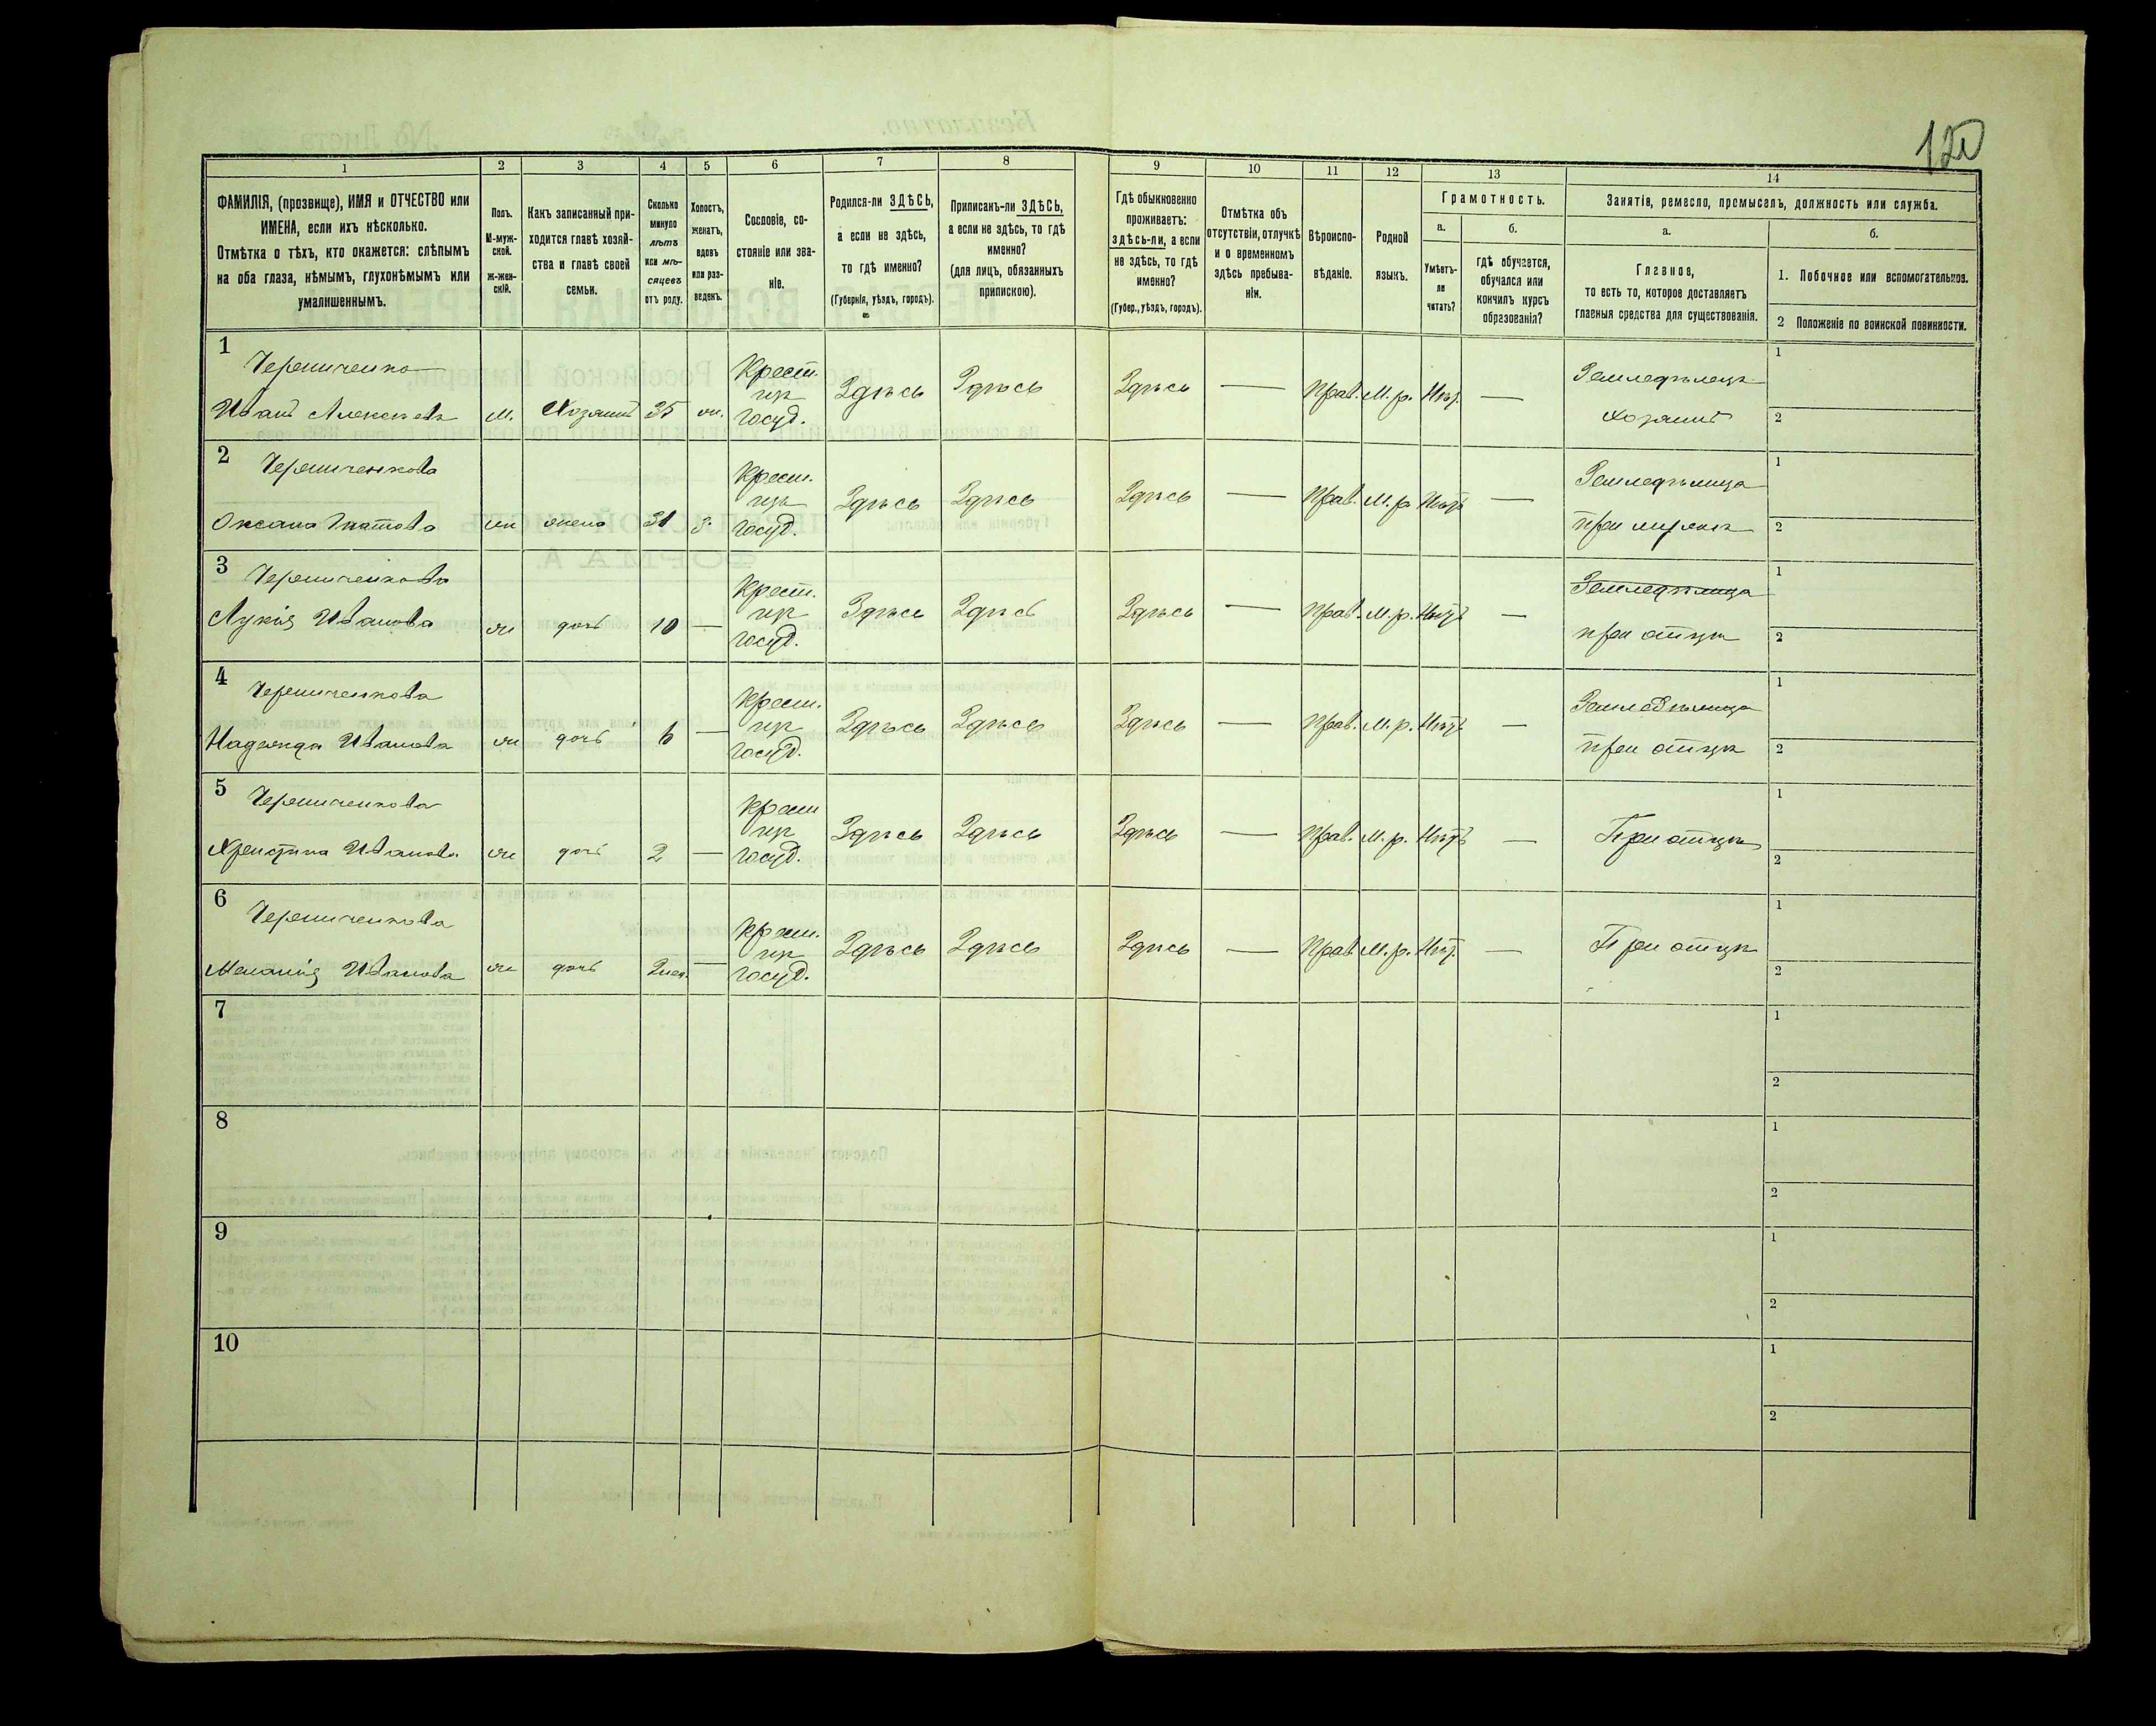 120
1
2
3
4
5
6
7
8
9
10
11
12
13
14
ФАМИЛІЯ, (прозвище), ИМЯ и ОТЧЕСТВО или
ИМЕНА, если ихъ нѣсколько.
Отмѣтка о тѣхъ, кто окажется: слѣпымъ
на оба глаза, нѣмымъ, глухонѣмымъ или
умалишеннымъ.
Полъ.
М-муж-
ской.
Ж-жен-
скій.
Какъ записанный при-
ходится главѣ хозяй-
ства и главѣ своей
семьи.
Сколько
минуло
лѣтъ
или мѣ-
сяцевъ
отъ роду.
Холостъ,
женатъ,
вдовъ
или раз-
веденъ.
Сословіе, со-
стояніе или зва-
ніе.
Родился-ли ЗДѢСЬ,
а если не здѣсь,
то гдѣ именно?
(Губернія, уѣздъ, городъ).
Приписанъ-ли ЗДѢСЬ,
а если не здѣсь, то гдѣ
именно?
(для лицъ, обязанныхъ
припискою).
Гдѣ обыкновенно
проживаетъ:
здѣсь-ли, а если
не здѣсь, то гдѣ
именно?
(Губер., уѣздъ, городъ).
Отмѣтка объ
отсутствіи, отлучкѣ
и о временномъ
здѣсь пребыва-
ніи.
Вѣроиспо-
вѣданіе.
Родной
языкъ.
Грамотность.
а.
Умѣетъ-
ли
читать?
б.
гдѣ обучается,
обучался или
кончилъ курсъ
образованія?
Занятіе, ремесло, промыселъ, должность или служба.
а.
Главное,
то есть то, которое доставляетъ
главныя средства для существованія.
б.
1. Побочное или вспомогательное.
2 Положеніе по воинской повинности.
1
Черниченко
Иванъ Алексѣевъ
м.
Хозяинъ
35
ж.
Крест.
из
госуд.
Здѣсь
Здѣсь
Здѣсь
—
Прав.
М.р.
Нѣт.
—
Земледѣлецъ
хозяинъ
1
2
2
Черниченкова
Оксана
ж
жена
31
з.
Крест.
из
госуд.
Здѣсь
Здѣсь
Здѣсь
—
Прав.
М.р.
Нѣтъ
—
Земледѣлица
при мужѣ
1
2
3
Черниченкова
Лукія Иванова
ж
дочь
10
—
Крест.
из
госуд.
Здѣсь
Здѣсь
Здѣсь
—
Прав.
М.р.
Нѣтъ
—
Земледѣлица
при отцѣ
1
2
4
Черниченкова
Надежда Иванова
ж
дочь
6
—
Крест.
из
госуд.
Здѣсь
Здѣсь
Здѣсь
—
Прав.
М.р.
Нѣтъ
—
Земледѣлица
при отцѣ
1
2
5
Черниченкова
Христина Иванова
ж
дочь
2
—
Крест
из
госуд.
Здѣсь
Здѣсь
Здѣсь
—
Прав.
М.р.
Нѣтъ
—
При отцѣ
1
2
6
Черниченкова
Меланія Иванова
ж
дочь
2 мец.
—
Крест.
из
госуд.
Здѣсь
Здѣсь
Здѣсь
—
Прав
М.р.
Нѣт.
—
При отцѣ
1
2
7
1
2
8
1
2
9
1
2
10
1
2